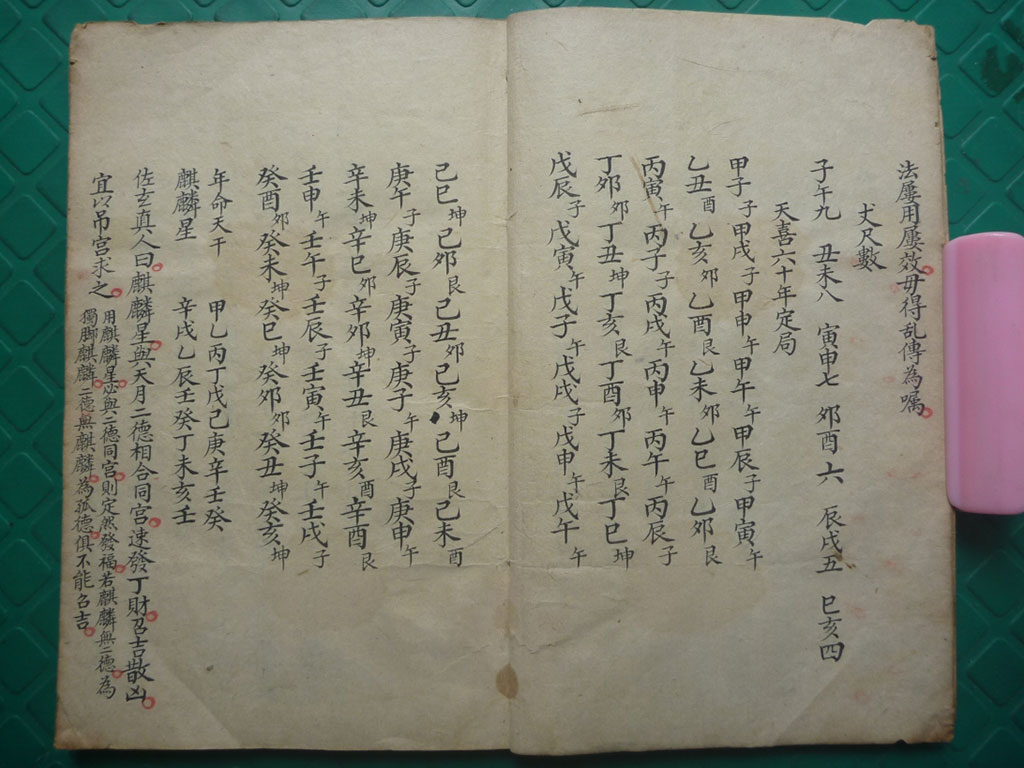 法屢用屢效毋得乱傳為嘱
丈尺數
子午九 丑未八 寅申七 夘酉六 辰戌五 巳亥四
天喜六十年定局
甲子子甲戌子甲申午甲午午甲辰子甲寅午
乙丑酉乙亥夘乙酉艮乙未夘乙巳酉乙夘艮
丙寅午丙子子丙戌午丙申午丙午午丙辰子
丁夘夘丁丑坤丁亥艮丁酉夘丁未艮丁巳坤
戊辰子戊寅午戊子午戊戌子戊申午戊午午
己巳坤己夘艮己丑夘己亥坤己酉艮己未酉
庚午子庚辰子庚寅子庚子午庚戌子庚申午
辛未坤辛巳夘辛夘坤辛丑艮辛亥酉辛酉艮
壬申午壬午子壬辰子壬寅午壬子午壬戌子
癸酉夘癸未坤癸巳坤癸夘夘癸丑坤癸亥坤
年命天干 甲乙丙丁戊己庚辛壬癸
麒麟星 辛戌乙辰壬癸丁未亥壬
佐玄真人曰麒麟星與天月二德相合同宮速發丁財召吉散凶
宜以吊宮求之用麒麟星必與二德同宮則定然發福若麒麟無二德為
獨脚麒麟二德無麒麟為孤德俱不能召吉